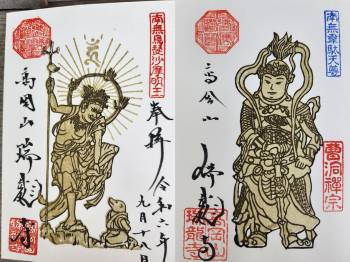 南無烏芻沙摩明王
奉拝
令和六年
九月十八日
高岡山
瑞龍寺
南無韋駄天尊
高岡山
瑞龍寺
曹洞禅宗